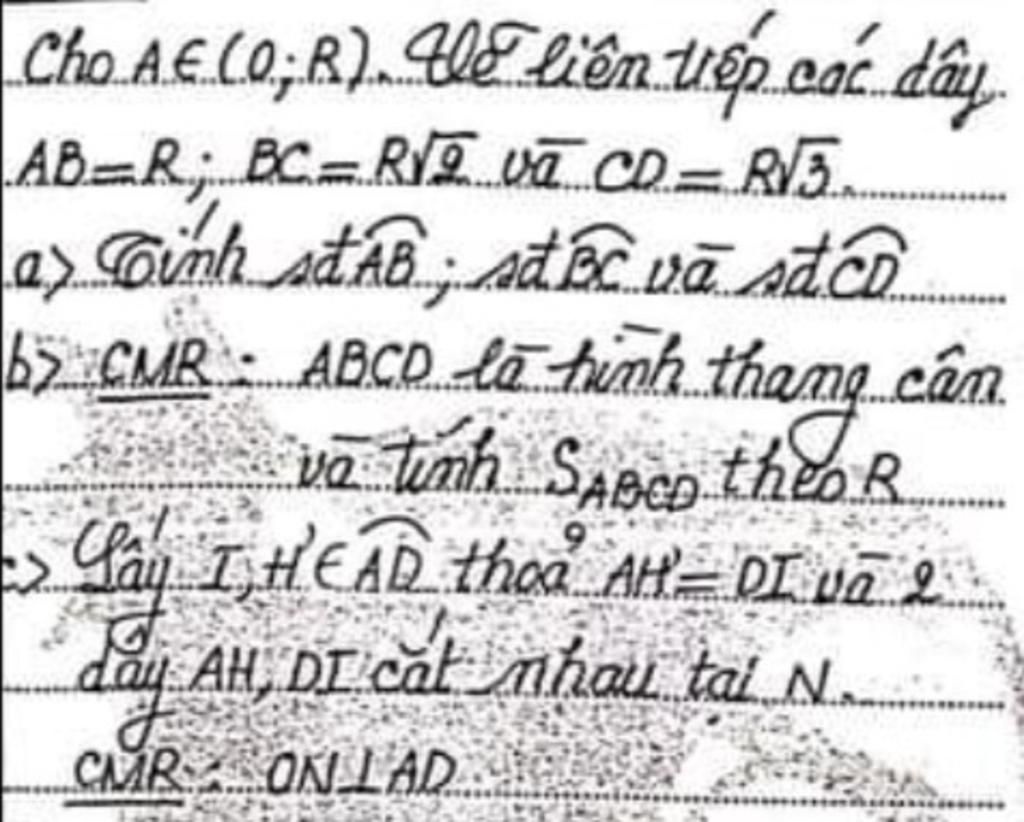 Cho A∈(O;R). Vẽ liên tiếp các dây
AB=R; BC=R√2 và CD=R√3.
a> Tính sđ$\overset{\frown}{AB}$; sđ$\overset{\frown}{BC}$ và sđ$\overset{\frown}{CD}$
b> CMR: ABCD là hình thang cân
và tính S_ABCD theo R
c> Lấy I,H∈$\overset{\frown}{AD}$ thoả AH=DI và 2
dây AH,DI cắt nhau tại N.
CMR: ON⊥AD